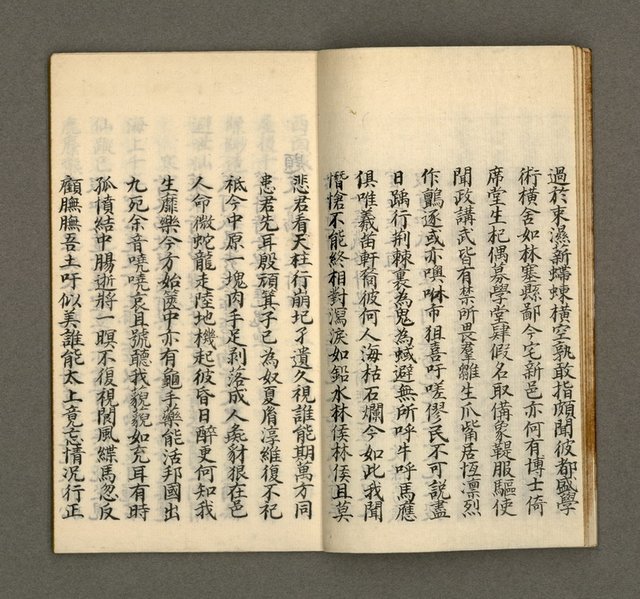 過於束濕新蝃蝀橫空孰敢指頗聞彼都盛學
術橫舍如林塞縣鄙今宅新邑亦何有博士倚
席堂生杞偶募學堂肆假名取備象鞮服驅使
聞政講武皆有禁所畏羣雛生爪觜居恆凛烈
作鸇逐或亦噢咻市狙喜吁嗟僇民不可說盡
日踽行荊棘裏為鬼為蜮避無所呼牛呼馬應
俱唯羲皇軒
彼何人海枯石爛今如此我聞
憯愴不能終相對瀉淚如鉛水林矦林矦且莫
悲君看天柱行崩圮孑遺久視誰能期萬方同
患君先耳殷頑箕子已為奴夏胤淳維復不祀
祗今中原一塊肉手足剥落成人彘豺狼在邑
人命微蛇龍走陸地機起彼昏日醉更何知我
生靡樂今方始篋中亦有龜手藥能活邦國出
九死余音嘵嘵哀且號聽我藐藐如充耳有時
孤憤結中腸逝將一瞑不復視閬風緤馬忽反
顧膴膴吾土吁似美誰能太上竟忘情況行正